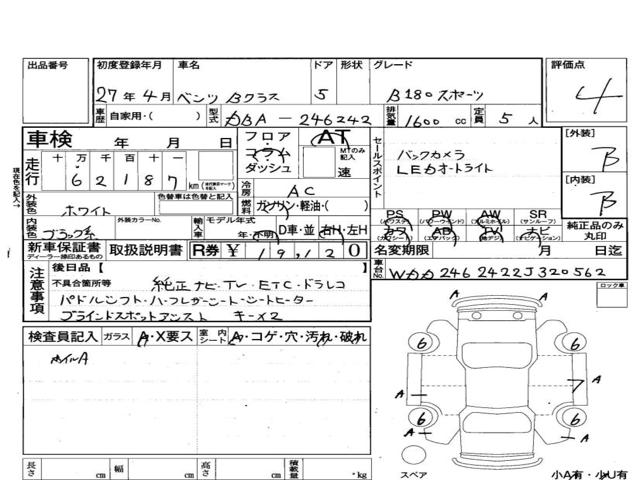 出品番号 初度登録年月 車名 ドア 形状 グレード 評価点
27年4月 ベンツ Bクラス 5 B180スポーツ 4
車歴 自家用・( ) 型式 DBA-246242 排気量 1600 cc 定員 5 人
車検 年 月 日 フロア・コラム・ダッシュ AT MTのみ記入 速 セールスポイント [外装] B
走行 十 万 千 百 十 62187 km バックカメラ
LEDオートライト
冷房 AC [内装] B
外装色 ホワイト 色替車は色替と記入 燃料 ガソリン・軽油・( )
PS (パワステ) PW (パワーウィンドウ) AW (アルミホイル) SR (サンルーフ)
内装色 ブラック系 外装カラーNo. 輸入車 モデル年式 年・不明 D車・並 右H・左H カワ (カワシート) エアB (エアバック) TV (地デジ) ナビ (ナビゲーション) 純正品のみ丸印
新車保証書 ディーラー捺印あるもの 取扱説明書 R券 ¥ 19,120 名変期限 月 日迄
注意事項 後日品【 車台No. WDD2462422J320562
不具合箇所等 純正ナビ・TV・ETC・ドラレコ ロック車
パドルシフト・ハーフレザーシート・シートヒーター
ブラインドスポットアシスト キー×2
検査員記入 ガラス A・X要ス 室内シート A・コゲ・穴・汚れ・破れ
ホイルA
A
6 6
A 7 A
6 6
A A
A
長さ cm 幅 cm 高さ cm 積載量 ・kg スペア 小A有・小U有
現在色を記入→